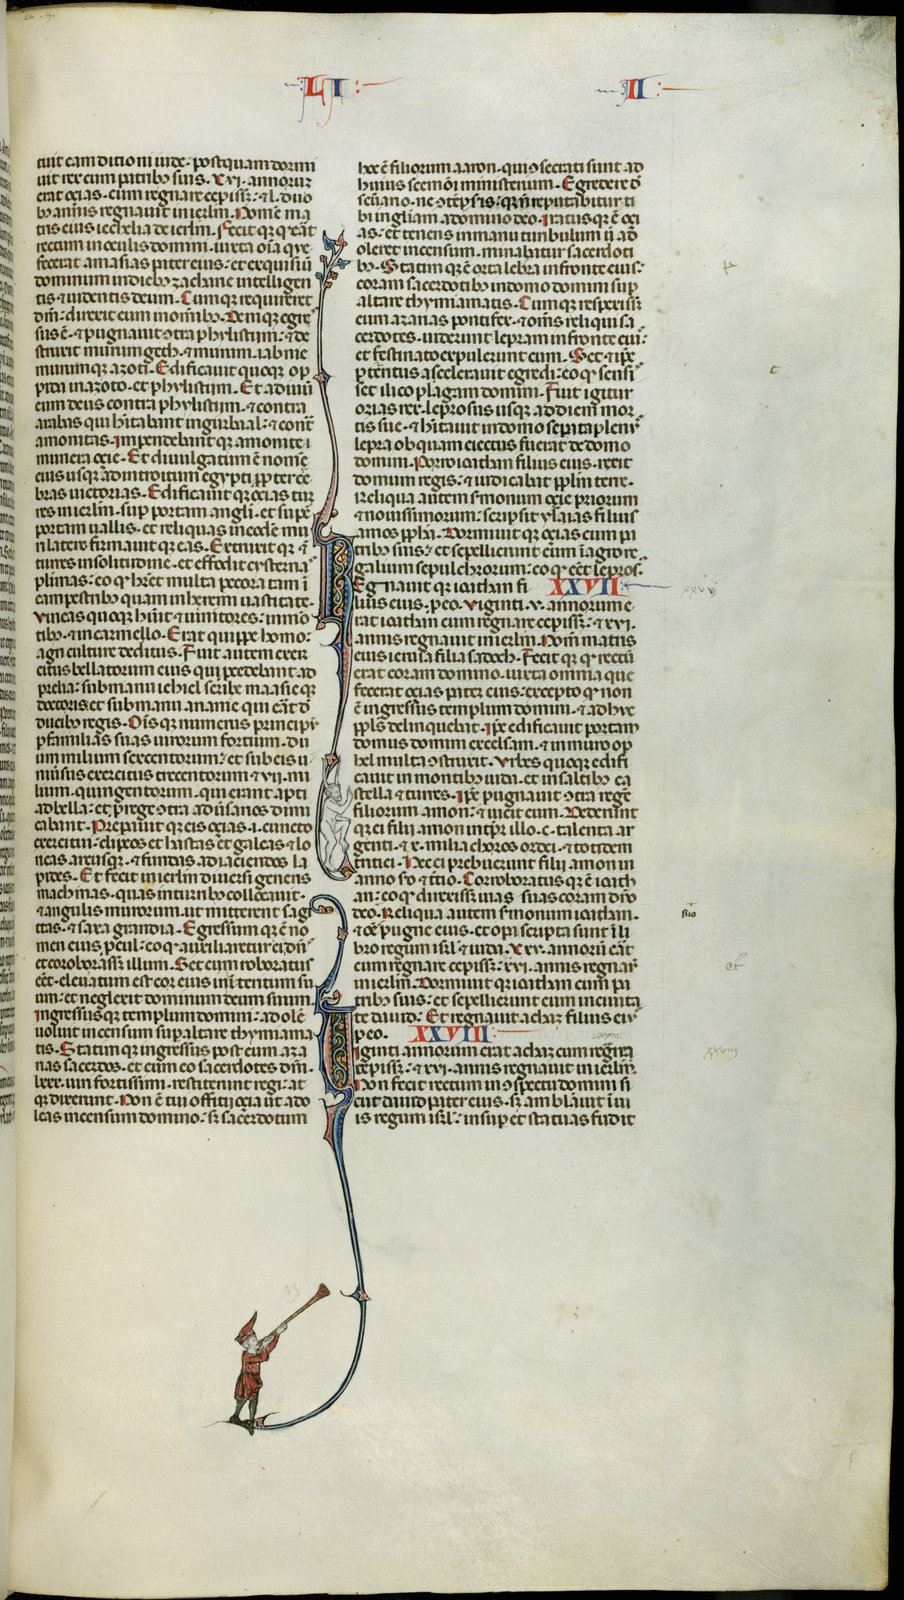 LI II
tuit eam ditioni iude. postquam dormi
uit rex cum patribus suis. XVI. annorum
erat ozias. cum regnare cepisset. & l. duo
bus annis regnauit in ierlm. Nomen ma
tris eius iechelia de ierlm. Fecit que quod erat
rectum in oculis domini. iuxta omnia que
fecerat amasias pater eius. et exquisiuit
dominum in diebus zacharie intelligen
tis & uidentis deum. Cumque requireret
dnm. direxit eum in omnibus. Denique egre
sus e. & pugnauit contra phylistiim. & de
struxit murum geth. & murum iabnie
murumque azoti. Edificauit quoque op
pida in azoto. et phylistiim. Et adiuuit
eum deus contra phylistiim. & contra
arabas qui habitabant in gurbaal. & contra
amonitas. Impendebantque amonite
munera ozie. Et diuulgatum e nomen
eius usque ad introitum egypti propter cre
bras uictorias. Edificauitque ozias tur
res in ierlm. super portam anguli. et super
portam uallis. et reliquas in eodem mu
ri latere firmauitque eas. Extruxitque &
turres in solitudine. et effodit cisternas
plurimas. eo quod haberet multa pecora tam in
campestribus quam in heremi uastitate.
Vineas quoque habuit & uinitores. in mon
tibus. & in carmello. Erat quippe homo
agriculture deditus. Fuit autem exer
citus bellatorum eius qui procedebant ad
prelia. sub manu iehiel scribe maasieque
doctoris. et sub manu ananie qui erat de
ducibus regis. Omnisque numerus principum
per familias suas uirorum fortium. du
um milium sexcentorum. et sub eis u
niuersus exercitus trecentorum & VII. mi
lium. quingentorum. qui erant apti
ad bella. et pro rege contra aduersarios dimi
cabant. Preparauitque eis ozias. i. cuncto
exercitui. clipeos et hastas et galeas & lo
ricas arcusque. & fundas ad iaciendos la
pides. Et fecit in ierlm diuersi generis
machinas. quas in turribus collocauit.
& in angulis murorum. ut mitterent sagit
tas. & saxa grandia. Egressumque e no
men eius procul. eo quod auxiliaretur ei dns
et corroborasset illum. Set cum roboratus
esset. eleuatum est cor eius in interitum su
um. et neglexit dominum deum suum.
Ingressusque templum domini. adole
uoluit incensum super altare thymiama
tis. Statimque ingressus post eum aza
rias sacerdos. et cum eo sacerdotes dni
lxxx. uiri fortissimi. restiterunt regi. at
que dixerunt. Non e tui officii ozia ut ado
leas incensum domino. set sacerdotum
hoc e filiorum aaron. qui consecrati sunt ad
huiusscemodi ministerium. Egredere de
sanctuario. ne contempseris. quia non reputabitur ti
bi in gloriam a domino deo. Iratusque e ozi
as. et tenens in manu turibulum ut ad
oleret incensum. minabatur sacerdoti
bus. Statimque e orta lepra in fronte eius.
coram sacerdotibus in domo domini super
altare thymiamatis. Cumque respexisset
eum azarias pontifex. & omnes reliqui sa
cerdotes. uiderunt lepram in fronte eius.
et festinato expulerunt eum. Set & ipse
perterritus accelerauit egredi. eo quod sensis
set ilico plagam domini. Fuit igitur
ozias rex leprosus usque ad diem mor
tis sue. & habitauit in domo separata plenus
lepra ob quam eiectus fuerat de domo
domini. Porro ioatham filius eius. rexit
domum regis. & iudicabat populum terre.
Reliqua autem sermonum ozie priorum
& nouissimorum. scripsit ysaias filius
amos propheta. Dormiuitque ozias cum pa
tribus suis. et sepellierunt eum in agro re
galium sepulchrorum. eo quod esset leprosus.
Regnauitque ioatham fi XXVII
lius eius. pro eo. Viginti. V. annorum e
rat ioatham cum regnare cepisset. & XVI.
annis regnauit in ierlm. Nomen matris
eius ierusa filia sadoch. Fecitque quod rectum
erat coram domino. iuxta omnia que
fecerat ozias pater eius. excepto quod non
e ingressus templum domini. & adhuc
populus delinquebat. Ipse edificauit portam
domus domini excelsam. & in muro op
hel multa construxit. Vrbes quoque edifi
cauit in montibus iuda. et in saltibus ca
stella & turres. Ipse pugnauit contra regem
filiorum amon. & uicit eum. Dederunt
que ei filii amon in tempore illo. c. talenta ar
genti. & x. milia choros ordei. & totidem
tritici. Hec ei prebuerunt filii amon in
anno secundo & tercio. Corroboratusque e ioath
an. eo quod direxisset uias suas coram dno
deo. Reliqua autem sermonum ioathan.
& omnes pugne eius. et opera scripta sunt in li
bro regum isrl & iuda. XXV. annorum erat
cum regnare cepisset. XVI. annis regnauit
in ierlm. Dormiuitque ioatham cum pa
tribus suis. et sepellierunt eum in ciuita
te dauid. Et regnauit achaz filius eius
pro eo. XXVIII
Viginti annorum erat achaz cum regnare
cepisset. & XVI. annis regnauit in ierlm.
Non fecit rectum in conspectu domini si
cut dauid pater eius. set ambulauit in ui
is regum isrl. insuper et statuas fudit